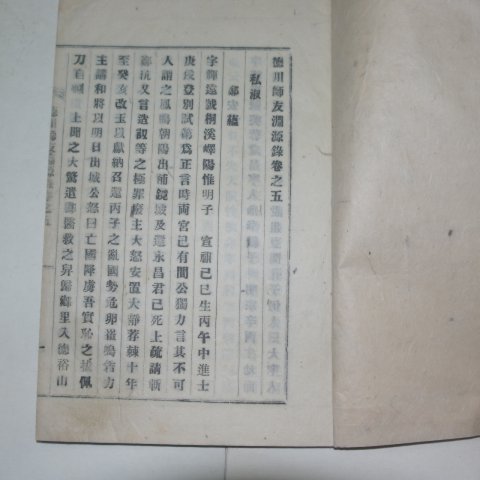 德川師友淵源錄卷之五
私淑
鄭蘊
字輝遠號桐溪嶧陽惟明子 宣祖己巳生丙午中進士
庚戌登別試第爲正言時兩宮已有間公獨力言其不可
人謂之鳳鳴朝陽出補鏡城及還永昌君已死上疏請斬
鄭沆又言造訍等之極罪廢主大怒安置大靜荐棘十年
至癸亥改玉以獻納召還丙子之亂國勢危卵崔鳴吉力
主講和將以明日出城公怒曰亡國降虜吾實恥之拔佩
刀自 上聞之大驚遣御醫救之舁歸鄉里入德裕山